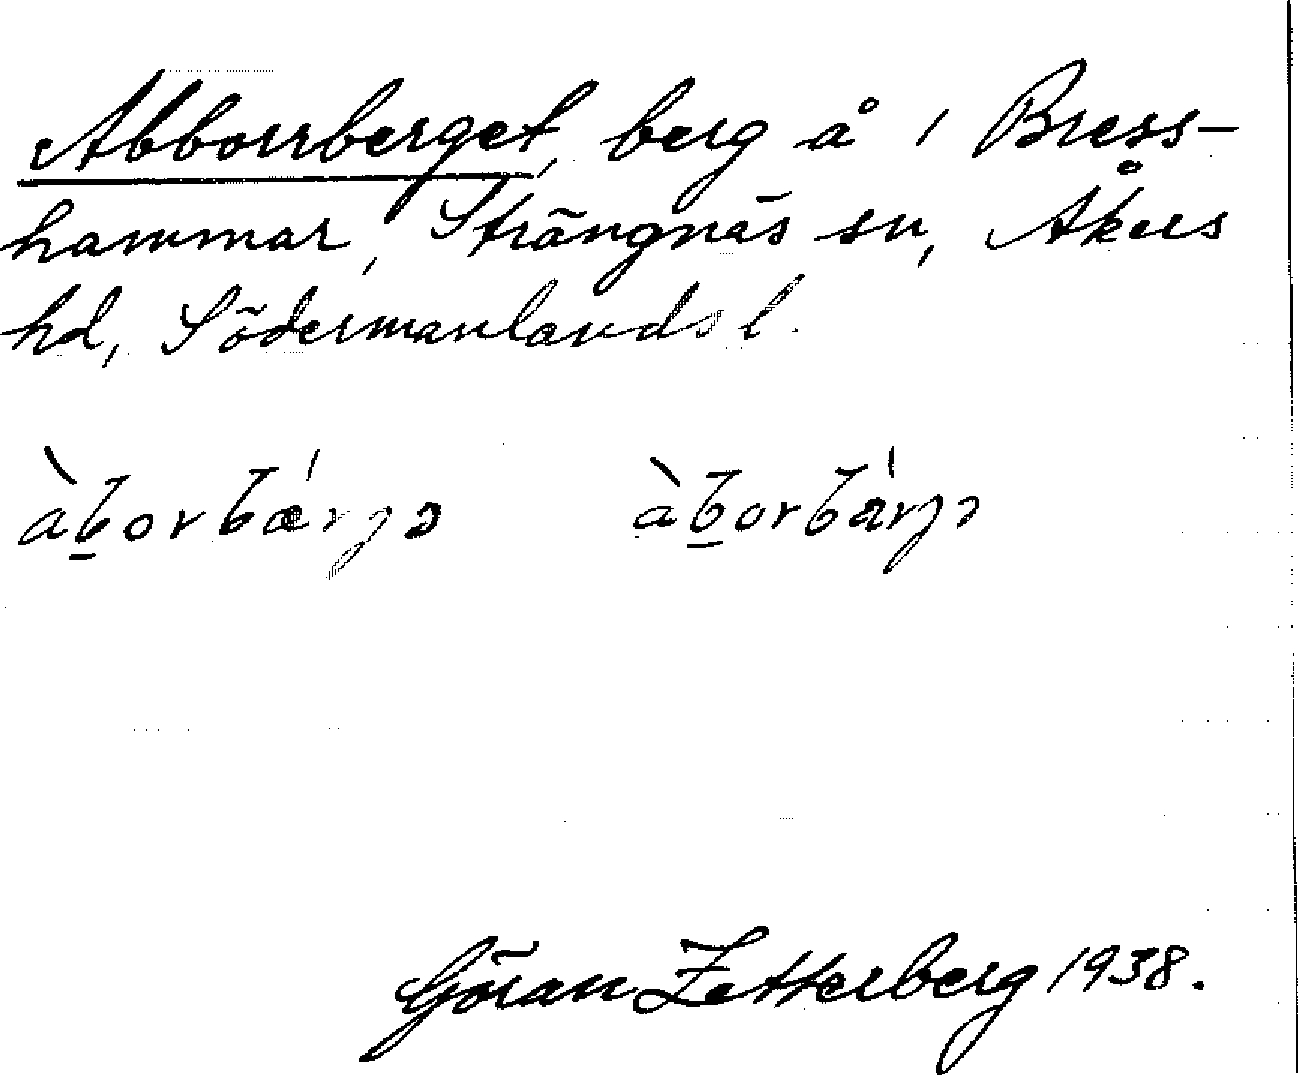 Abborrberget, berg å 1 Bress-
hammar, Strängnäs sn, Åkers
hd, Södermanlands l.
àb̲orbǽrjə àb̲orbárjə
Göran Zetterberg 1938.